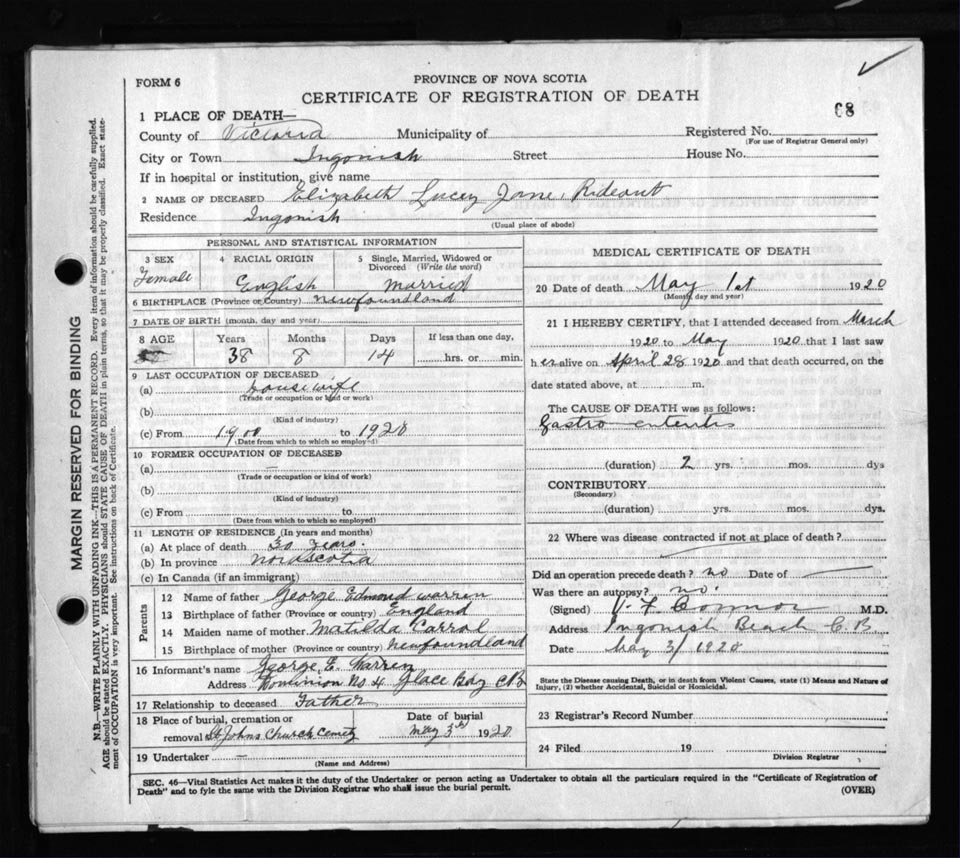 FORM 6
PROVINCE OF NOVA SCOTIA
CERTIFICATE OF REGISTRATION OF DEATH
68
1 PLACE OF DEATH—
County of Victoria Municipality of Registered No.
(For use of Registrar General only)
City or Town Ingonish Street House No.
If in hospital or institution, give name
2 NAME OF DECEASED Elizabeth Lucey Jane Rideout
Residence Ingonish
(Usual place of abode)
PERSONAL AND STATISTICAL INFORMATION
3 SEX 4 RACIAL ORIGIN 5 Single, Married, Widowed or Divorced (Write the word)
Female English Married
6 BIRTHPLACE (Province or Country) Newfoundland
7 DATE OF BIRTH (month, day and year)
8 AGE Years Months Days If less than one day,
38 8 14 hrs. or min.
9 LAST OCCUPATION OF DECEASED
(a) Housewife
(Trade or occupation or kind or work)
(b)
(Kind of industry)
(c) From 1900 to 1920
(Date from which to which so employed)
10 FORMER OCCUPATION OF DECEASED
(a) —
(Trade or occupation or kind of work)
(b)
(Kind of industry)
(c) From to
(Date from which to which so employed)
11 LENGTH OF RESIDENCE (In years and months)
(a) At place of death 30 years.
(b) In province Nova Scotia
(c) In Canada (if an immigrant)
Parents
12 Name of father George Edmond Warren
13 Birthplace of father (Province or country) England
14 Maiden name of mother Matilda Carrol
15 Birthplace of mother (Province or country) Newfoundland
16 Informant's name George E. Warren
Address Dominion No 4 Glace Bay CB
17 Relationship to deceased Father
18 Place of burial, cremation or removal St Johns Church Cemety
Date of burial
May 3rd 1920
19 Undertaker —
(Name and Address)
MEDICAL CERTIFICATE OF DEATH
20 Date of death May 1st 1920
(Month, day and year)
21 I HEREBY CERTIFY, that I attended deceased from March
1920 to May 1920 that I last saw
h er alive on April 28 1920 and that death occurred, on the
date stated above, at m.
The CAUSE OF DEATH was as follows:
Gastro enteritis
(duration) 2 yrs. mos. dys
CONTRIBUTORY
(Secondary)
(duration) yrs. mos. dys.
22 Where was disease contracted if not at place of death?
Did an operation precede death? no Date of
Was there an autopsy? no.
(Signed) M.D.
Address Ingonish Beach C.B
Date May 3/1920
State the Disease causing Death, or in death from Violent Causes, state (1) Means and Nature of
Injury, (2) whether Accidental, Suicidal or Homicidal.
23 Registrar's Record Number
24 Filed 19
Division Registrar
SEC. 46—Vital Statistics Act makes it the duty of the Undertaker or person acting as Undertaker to obtain all the particulars required in the "Certificate of Registration of
Death" and to fyle the same with the Division Registrar who shall issue the burial permit.
(OVER)
MARGIN RESERVED FOR BINDING
N.B.—WRITE PLAINLY WITH UNFADING INK—THIS IS A PERMANENT RECORD. Every item of information should be carefully supplied.
AGE should be stated EXACTLY. PHYSICIANS should STATE CAUSE OF DEATH in plain terms, so that it may be properly classified. Exact state-
ment of OCCUPATION is very important. See instructions on back of Certificate.